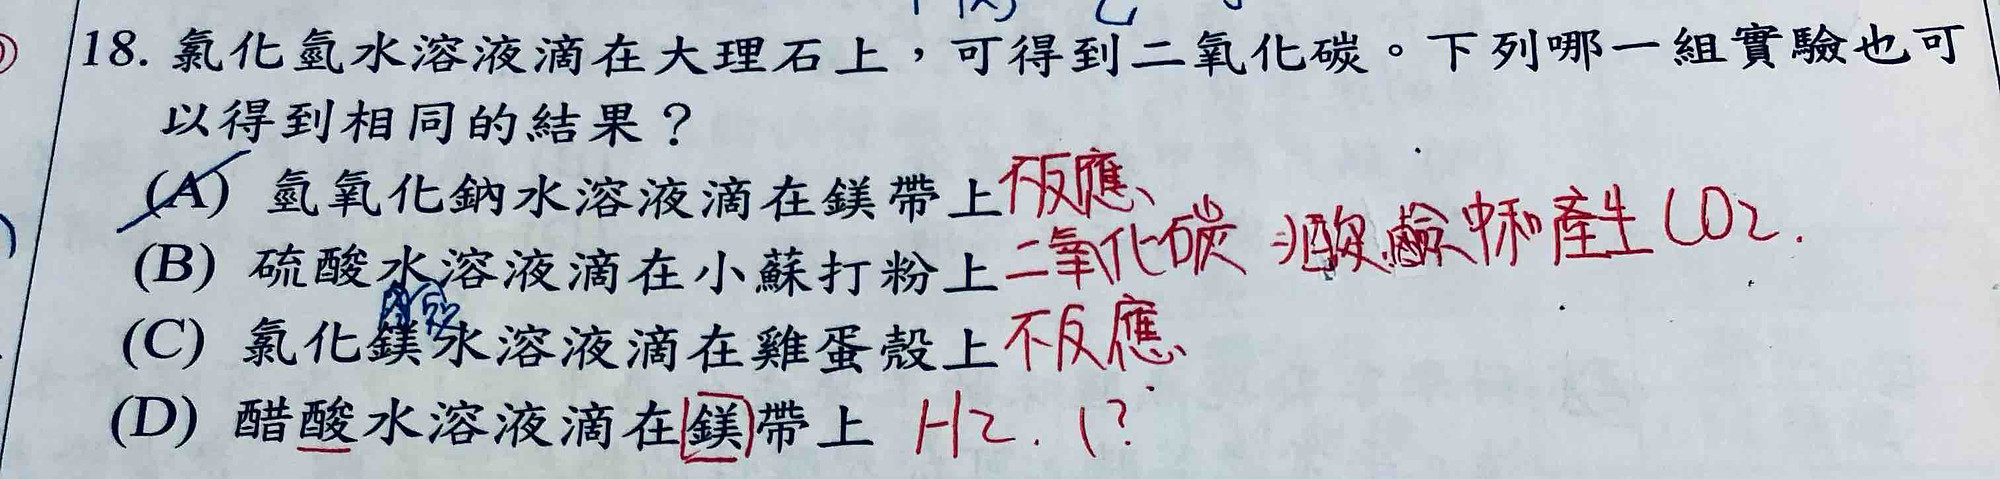 18. 氯化氫水溶液滴在大理石上，可得到二氧化碳。下列哪一組實驗也可
以得到相同的結果？
(A) 氫氧化鈉水溶液滴在鎂帶上 不反應、
(B) 硫酸水溶液滴在小蘇打粉上 二氧化碳 酸鹼中和產生CO2.
(C) 氯化鎂水溶液滴在雞蛋殼上 不反應、
(D) 醋酸水溶液滴在鎂帶上 H2. (?